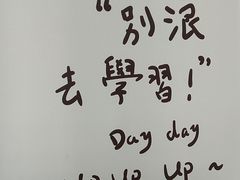 "別浪
去學習!"
Day day
up ~